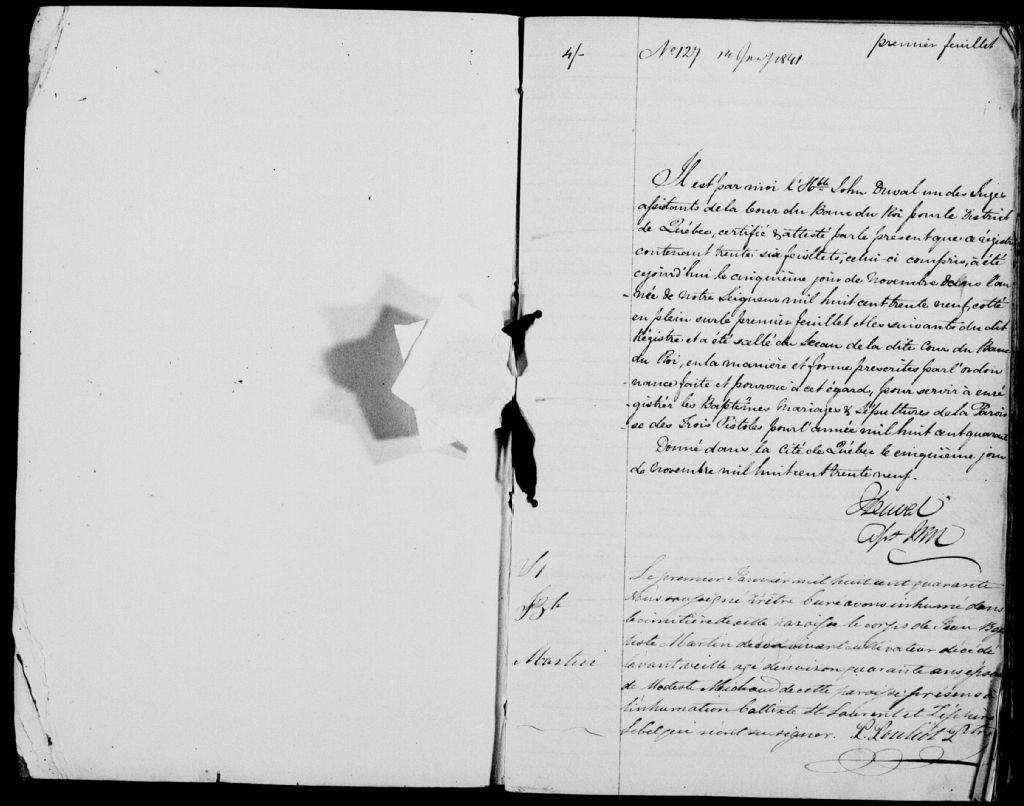 premier feuillet
4/- No 127 14 Janv 1841
Il est par moi l'Hble John Duval un des Juges
assistants de la Cour du Banc du Roi pour le District
de Québec, certifié & attesté par le présent que ce régistre
contenant trente six feuillets, celui-ci compris, a été
cejourd'hui le cinquième jour de Novembre dans l'an
-née de Notre Seigneur mil huit cent trente neuf, cotté
en plein sur le premier feuillet et les suivants du dit
Régistre et a été scellé du Sceau de la dite Cour du Banc
du Roi, en la manière et forme prescrites par l'ordon
-nance faite et pourvue à cet égard, pour servir à enré
-gistrer les Baptêmes Mariages & Sépultures de la Parois
-se des Trois Pistoles pour l'année mil huit cent quarante
Donné dans la Cité de Québec le cinquième jour
de Novembre mil huit cent trente neuf.
JDuval
S1
JBte
Martin
Le premier Janvier mil huit cent quarante
Nous soussigné Prêtre Curé avons inhumé dans
le cimitière de cette paroisse le corps de Jean Bap
tiste Martin de son vivant cultivateur décédé
l'avant veille agé d'environ quarante ans époux
de Modeste Michaud de cette paroisse présens à
l'inhumation Callixte St Laurent et Zéphirin
Lebel qui n'ont su signer. L. Pouliot Ptre